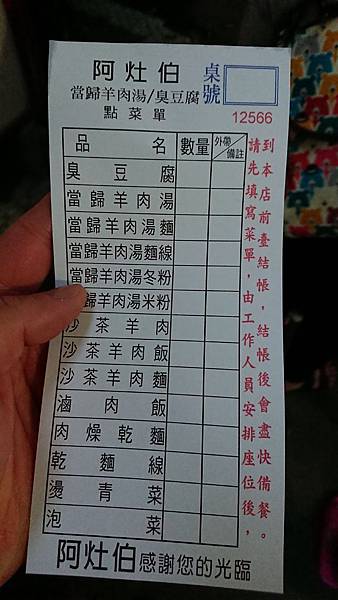 阿灶伯
當歸羊肉湯/臭豆腐
點菜單
桌號
12566
品名 數量 外帶/備註
臭豆腐
當歸羊肉湯
當歸羊肉湯麵
當歸羊肉湯麵線
當歸羊肉湯冬粉
歸羊肉湯米粉
沙茶羊肉
沙茶羊肉飯
沙茶羊肉麵
滷肉飯
肉燥乾麵
乾麵線
燙青菜
泡菜
請先填寫菜單,由工作人員安排座位後,
到本店前臺結帳,結帳後會盡快備餐。
阿灶伯感謝您的光臨